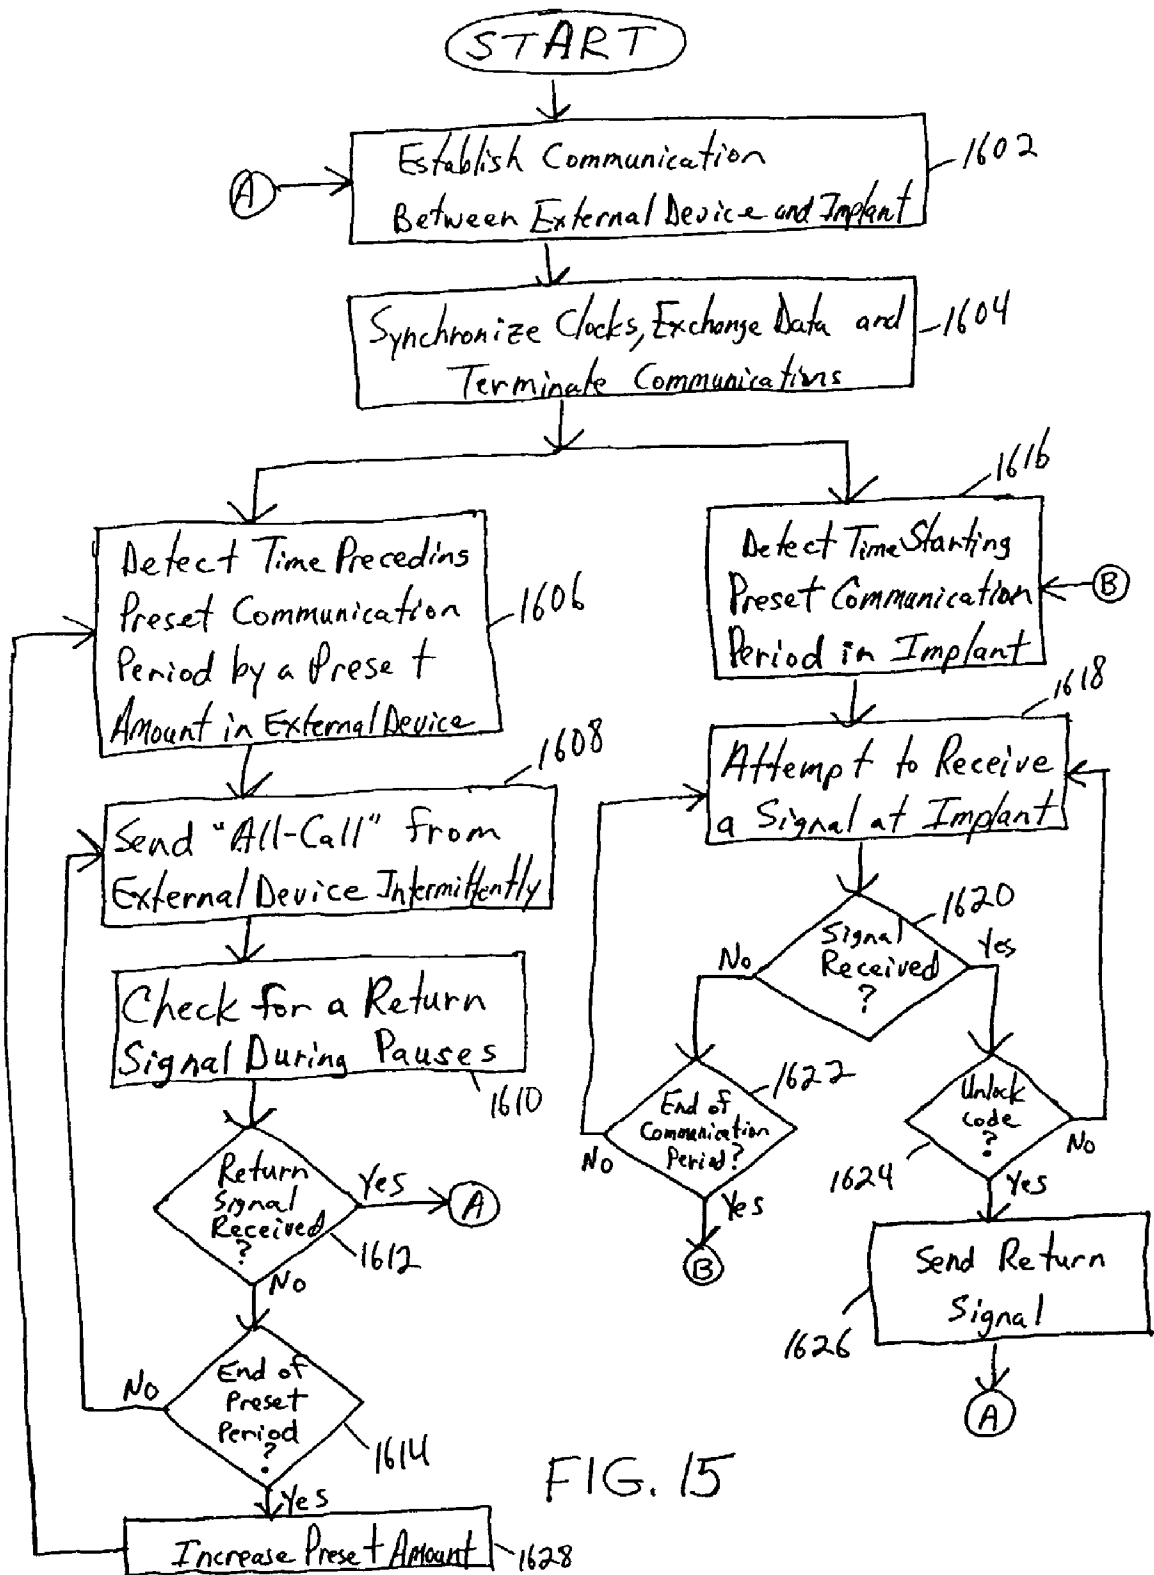 START
A
Establish Communication
Between External Device and Implant
1602
Synchronize Clocks, Exchange Data and
Terminate Communications
1604
Detect Time Precedins
Preset Communication
Period by a Preset
Amount in External Device
1606
Send "All-Call" from
External Device Intermittently
1608
Check for a Return
Signal During Pauses
1610
Return
Signal
Received
?
Yes
A
1612
No
End of
Preset
Period
?
No
1614
Yes
Increase Preset Amount
1628
1616
Detect Time Starting
Preset Communication
Period in Implant
B
1618
Attempt to Receive
a Signal at Implant
1620
Signal
Received
?
No
Yes
1622
End of
Communication
Period?
No
Yes
B
Unlock
Code
?
No
1624
Yes
Send Return
Signal
1626
A
FIG. 15